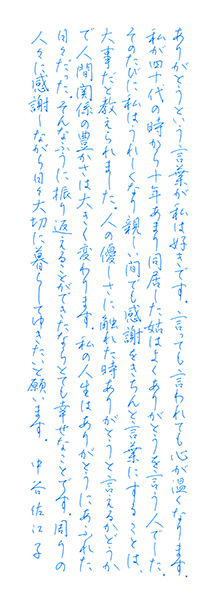 ありがとうという言葉が私は好きです。言っても言われても心が温くなります。
私が四十代の時から十年あまり同居した姑はよくありがとうを言う人でした。
そのたびに私はうれしくなり親しい間でも感謝をきちんと言葉にすることは、
大事だと教えられました。人の優しさに触れた時ありがとうと言えるかどうか
で人間関係の豊かさは大きく変わります。私の人生はありがとうにあふれた
日々だった。そんなふうに振り返えることができたならとても幸せなことです。周りの
人々に感謝しながら日々大切に暮らしてゆきたいと願います。 中谷佐江子